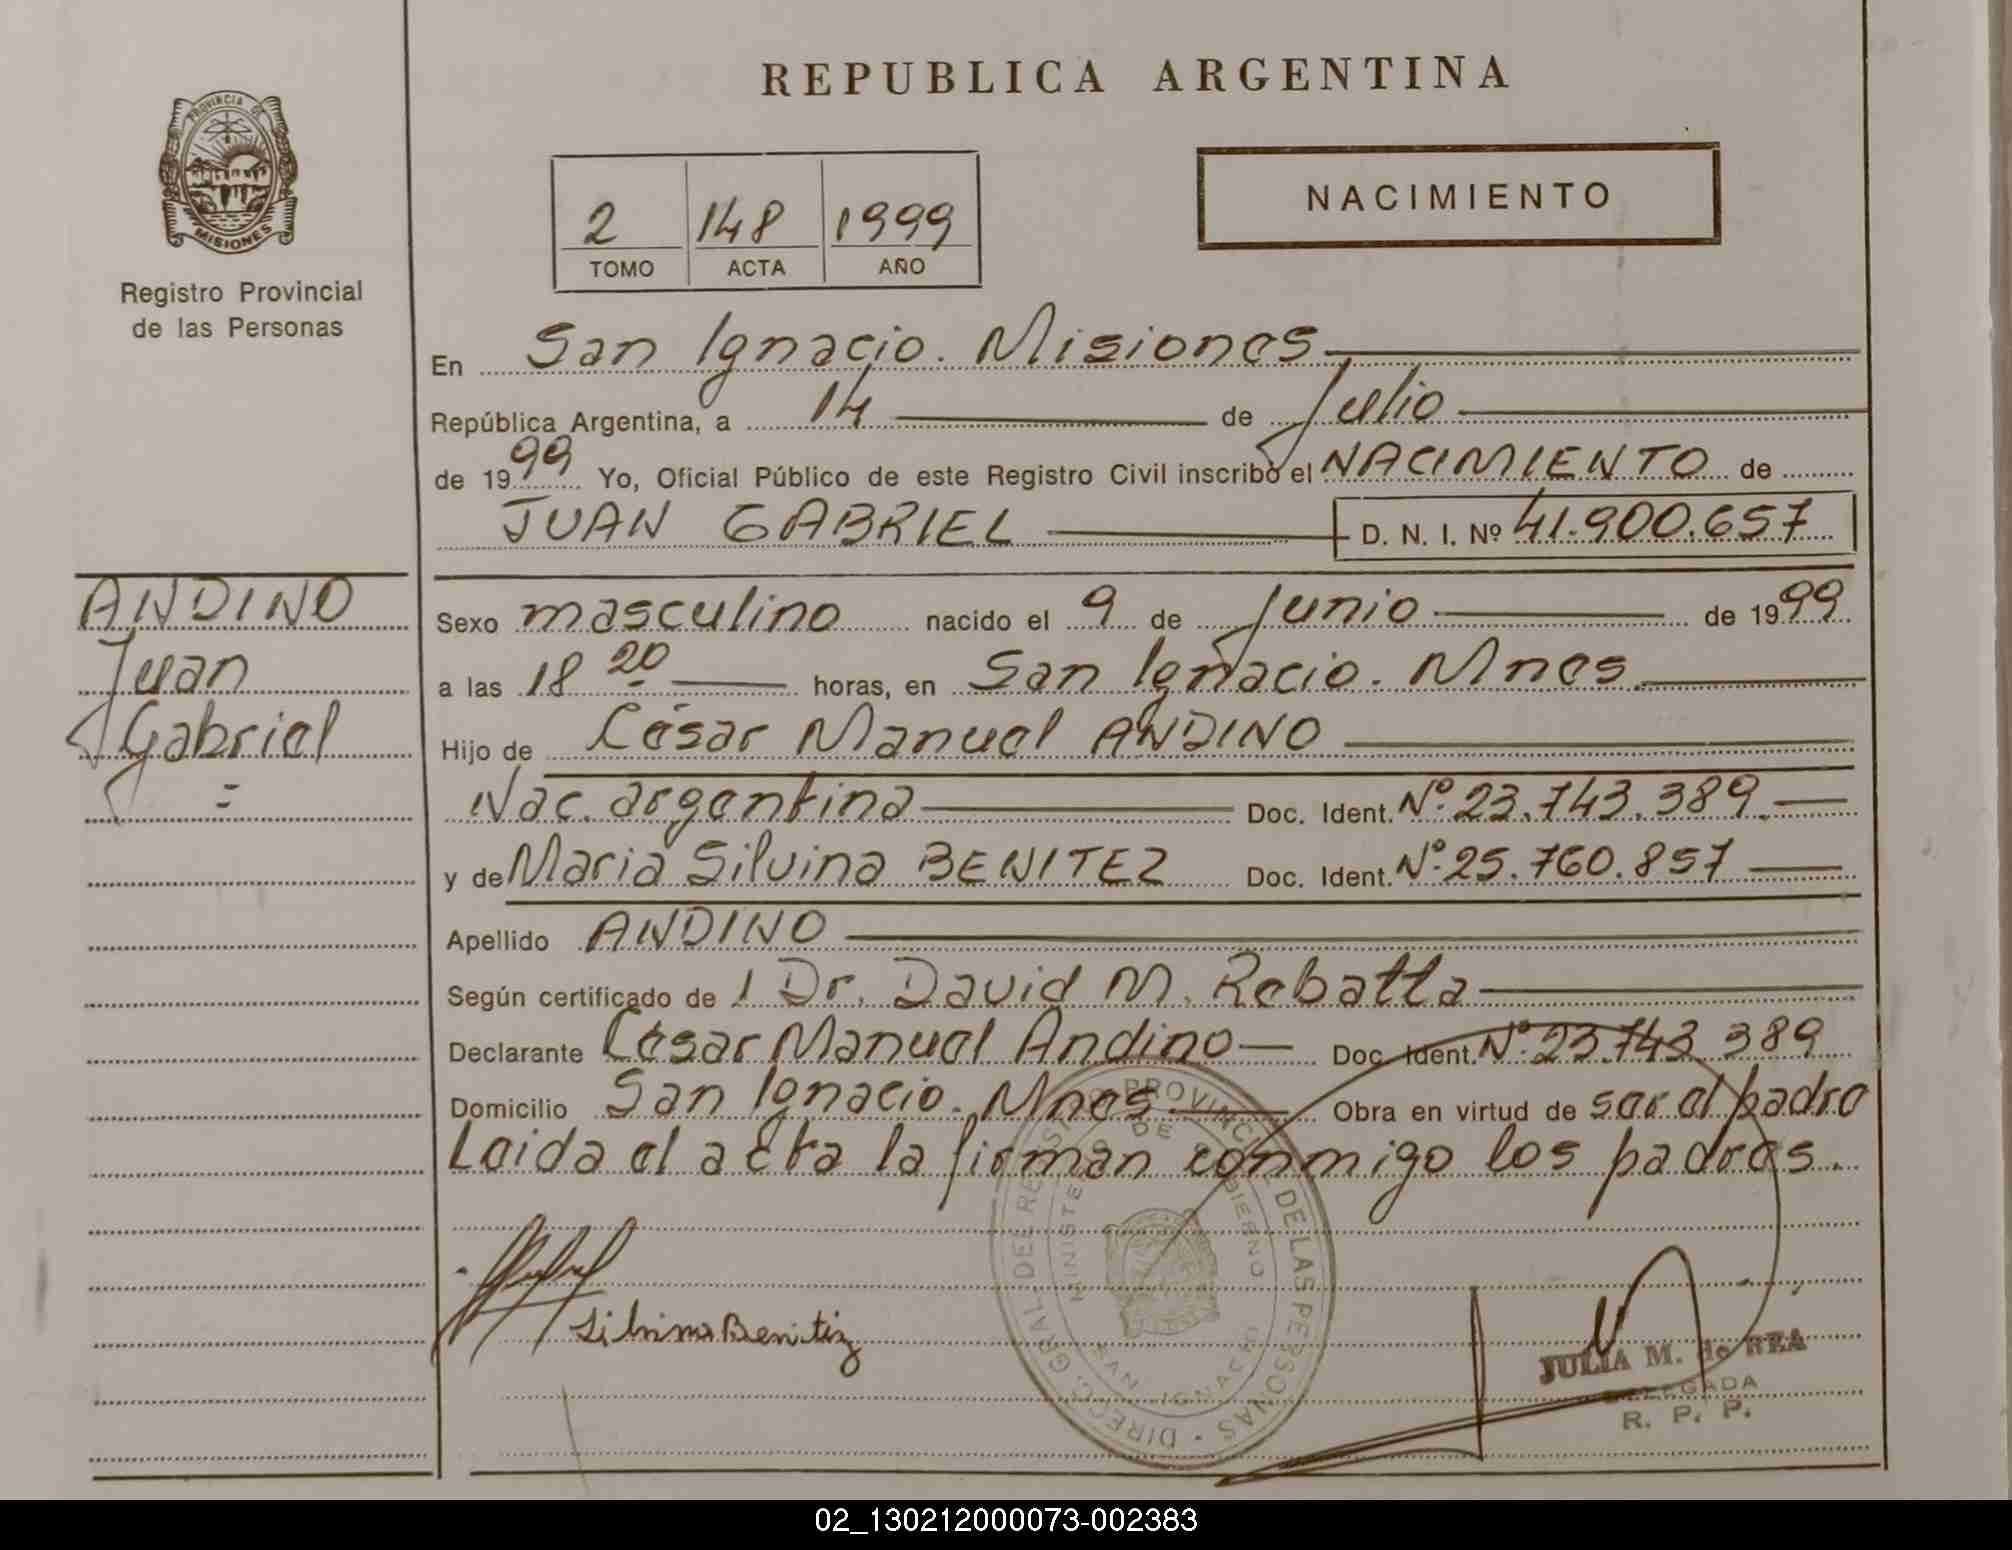 REPUBLICA ARGENTINA
PROVINCIA DE
MISIONES
Registro Provincial
de las Personas
NACIMIENTO
2 148 1999
TOMO ACTA AÑO
En San Ignacio. Misiones
República Argentina, a 14 de Julio
de 1999 Yo, Oficial Público de este Registro Civil inscribo el NACIMIENTO de
JUAN GABRIEL D. N. I. Nº 41.900.657
ANDINO
Juan
Gabriel
=
Sexo masculino nacido el 9 de Junio de 1999
a las 18 20 horas, en San Ignacio. Mnes.
Hijo de César Manuel ANDINO
Nac. argentina Doc. Ident. Nº 23.743.389.
y de Maria Silvina BENITEZ Doc. Ident. Nº 25.760.857
Apellido ANDINO
Según certificado de 1 Dr. David M. Rebatta
Declarante César Manuel Andino Doc. Ident. Nº 23.743 389
Domicilio San Ignacio. Mnes Obra en virtud de ser el padre
Leida el acta la firman conmigo los padres.
Silvina Benitez
DIREC. GRAL. DEL REGISTRO PROVINCIAL DE LAS PERSONAS
MINISTERIO DE GOBIERNO
SAN IGNACIO
JULIA M. de REA
DELEGADA
R. P. P.
02_130212000073-002383